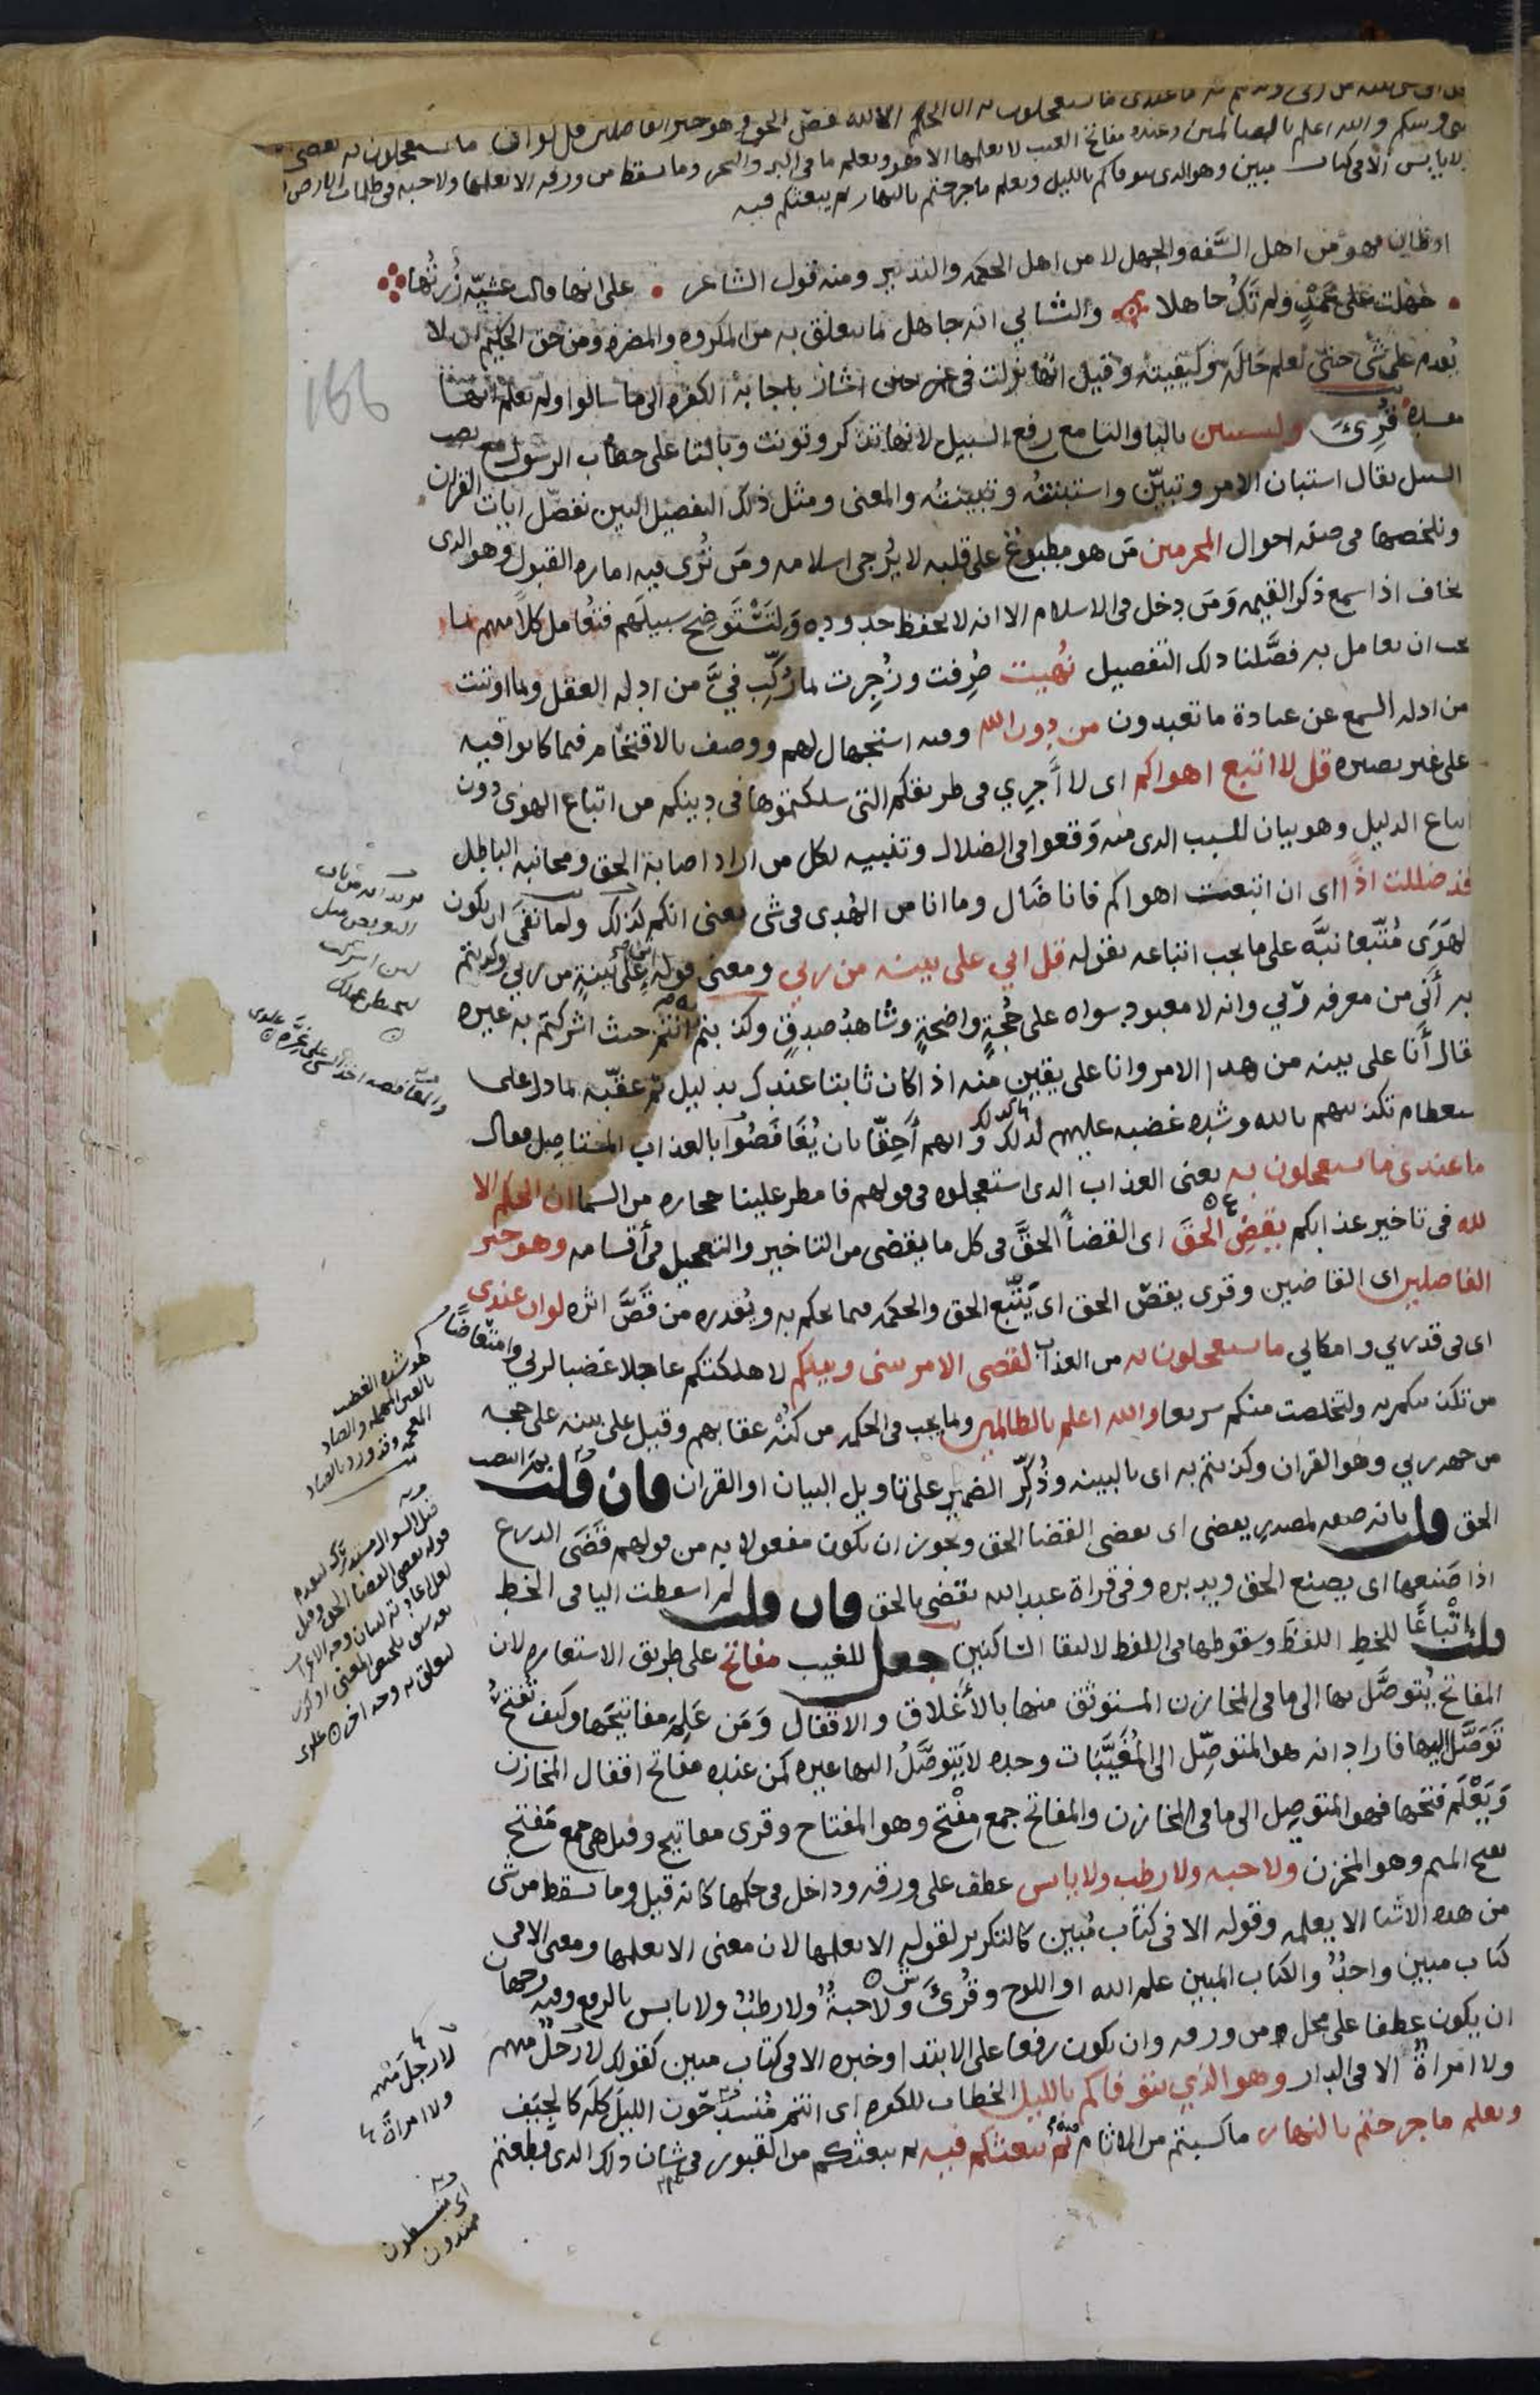 بينى وبينكم والله اعلم بالظالمين وعنده مفاتح الغيب لا يعلمها الا هو ويعلم ما فى البر والبحر وما تسقط من ورقه الا يعلمها ولا حبه فى ظلمات الارض
ولا يابس الا فى كتاب مبين وهو الذى يتوفاكم بالليل ويعلم ما جرحتم بالنهار ثم يبعثكم فيه
او ظان فهو من اهل السَّفه والجهل لا من اهل الحكمه والتدبير ومنه قول الشاعر • على انها قالت عشيّه زُرتُها
• جهلت على عَمْدٍ ولم تَكُ جاهلا والثاني انه جاهل بما يتعلق به من المكروه والمضره ومن حق الحكيم ان لا
يُقدم على شى حتى يعلم حَالَه وكيفيته وقيل انها نزلت فى عمر حين اشار باجابة الكفره الى ما سالوا ولم يعلم انها
مفسدة قُرِئَ وليستبين باليا والتا مع رفع السبيل لانها تذكر وتونث وبالتا على خطاب الرسول مع نصب
السبيل يقال استبان الامر وتبيّن واستبنتُه وتبينتُه والمعنى ومثل ذلك التفصيل البين نفصّل ايات القران
ونلخصها فى صفه احوال المجرمين مَن هو مطبوعٌ على قلبه لا يُرجى اسلامه ومَن نُرى فيه اماره القبول وهو الذى
يخاف اذا سمع ذكر القيمه وَمَن دخل فى الاسلام الا انه لا يحفظ حدوده وَلتَسْتَوضِحَ سبيلَهم فتُعامل كلاً منهم بما
يجب ان يعامل به فصَّلنا ذلك التفصيل نُهيت صُرِفت وزُجِرت بما رُكِّب فيَّ من ادله العقل وبما اوتيت
من ادله السمع عن عبادة ما تعبدون من دون الله وفيه استجهال لهم ووصف بالاقتحام فيما كانوا فيه
على غير بصيره قل لا اتبع اهواكم اى لا اجري فى طريقتكم التى سلكتموها فى دينكم من اتباع الهوى دون
اتباع الدليل وهو بيان للسبب الذى منه وَقعوا فى الضلال وتنبيه لكل من اراد اصابة الحق ومجانبه الباطل
قد ضللت اذًا اى ان اتبعت اهواكم فانا ضَالّ وما انا من الهُدى فى شى يعنى انكم كذلك ولما نَفَى ان يكون
الهَوَى مُتّبعا نبَّه على ما يجب اتباعه بقوله قل اني على بينه من ربي ومعنى قوله على بينةٍ من ربي وكذبتم
به أَنّى من معرفه ربي وانه لا معبود سواه على حُجةٍ واضحةٍ وشاهدُ صدقٍ وكذبتم به انتم حيث اشركتم به غيره
يقال أنا على بينه من هذا الامر وانا على يقينٍ منه اذا كان ثابتا عندك بدليل ثم عقّبه بما دل على
استعظام تكذيبهم بالله وشده غضبه عليهم لذلك وانهم أَحِقّا بان يُغَافَصُوا بالعذاب المستاصِل فقال
ما عندى ما تستعجلون به يعنى العذاب الذى استعجلوه فى قولهم فامطر علينا حجاره من السما ان الحكم الا
لله فى تاخير عذابكم يقضِ الحقَّ اى القضأَ الحقَّ فى كل ما يقضى من التاخير والتعجيل فى أقسامه وهو خير
الفاصلين اى القاضين وقرى يقصّ الحق اى يَتّبع الحق والحكمه فيما يحكم به ويُقدره من قَصَّ اثره لو ان عندى
اى فى قدرتي وامكاني ما تستعجلون به من العذاب لقضى الامر بينى وبينكم لاهلكتكم عاجلا غضبا لربي وامتعاضًا
من تكذيبكم به ولتخلصت منكم سريعا والله اعلم بالظالمين وبما يجب فى الحكمه من كُنْهِ عقابهم وقيل على بينه على حجه
من جهه ربي وهو القران وكذبتم به اى بالبينه وذُكِّر الضمير على تاويل البيان او القران فان قلت بم انتصب
الحق قلت بانه صفه لمصدر يقضى اى يقضى القضا الحق ويجوز ان يكون مفعولا به من قولهم قَضَى الدرع
اذا صَنعها اى يصنع الحق ويدبره وفى قراة عبد الله يقضى بالحق فان قلت لم اسقطت اليا فى الخط
قلت إِتْباعًا للخطِ اللفظَ وسقوطها فى اللفظ لالتقا الساكنين جعل للغيب مفاتح على طريق الاستعاره لان
المفاتح يُتوصَّل بها الى ما فى المخازن المستوثق منها بالأغْلاق والاقفال وَمَن عَلِمَ مفاتيحَها وكيف تفتح
تَوَصَّلَ اليها فاراد انه هو المتوصّل الى المُغَيَّبات وحده لا يَتوصَّلُ اليها غيره كمن عنده مفاتح اقفال المخازن
وَيَعْلَم فتحها فهو المتوصِل الى ما فى المخازن والمفاتح جمع مِفْتح وهو المفتاح وقرى مفاتيح وقيل هى جمع مَفتح
بفتح الميم وهو المخزن ولا حبه ولا رطب ولا يابس عطف على ورقه وداخل فى حكمها كانه قيل وما تسقط من شى
من هذه الاشيا الا يعلمه وقوله الا فى كتاب مُبين كالتكرير لقوله الا يعلمها لان معنى الا يعلمها ومعنى الا فى
كتاب مبين واحدٌ والكتاب المبين علم الله او اللوح وقُرئَ ولا حبةٌ ولا رطبٌ ولا يابس بالرفع وفيه وجهان
ان يكون عطفا على محل من ورقه وان يكون رفعا على الابتدا وخبره الا فى كتاب مبين كقولك لا رَجلٌ منهم
ولا امراةٌ الا فى الدار وهو الذي يتوفاكم بالليل الخطاب للكفره اى انتم مُنسدحون الليلَ كلّه كالجِيَف
ويعلم ما جرحتم بالنهار ما كسبتم من الاثام ثم يبعثكم فيه ثم يبعثكم من القبور فى شان ذلك الذى قطعتم
لئن اشركت
ليحبطن عملك
هو شده الغضب
بالعين المهمله والضاد
المعجمه وقد ورد بالصاد
لا رجلَ منهم
ولا امراةَ
اى منبسطون
ممتدون
166